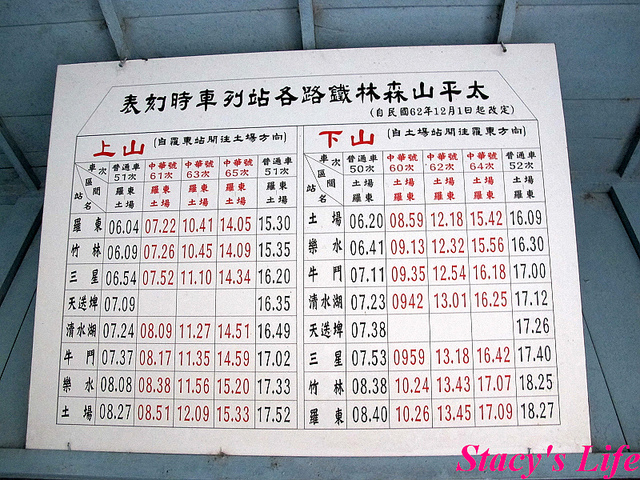 太平山森林鐵路各站列車時刻表
(自民國62年12月1日起改定)
上山 (自羅東站開往土場方向)
車次 普通車51次 中華號61次 中華號63次 中華號65次 普通車51次
區間 羅東土場 羅東土場 羅東土場 羅東土場 羅東土場
站名
羅東 06.04 07.22 10.41 14.05 15.30
竹林 06.09 07.26 10.45 14.09 15.35
三星 06.54 07.52 11.10 14.34 16.20
天送埤 07.09 16.35
清水湖 07.24 08.09 11.27 14.51 16.49
牛鬥 07.37 08.17 11.35 14.59 17.02
樂水 08.08 08.38 11.56 15.20 17.33
土場 08.27 08.51 12.09 15.33 17.52
下山 (自土場站開往羅東方向)
車次 普通車50次 中華號60次 中華號62次 中華號64次 普通車52次
區間 土場羅東 土場羅東 土場羅東 土場羅東 土場羅東
站名
土場 06.20 08.59 12.18 15.42 16.09
樂水 06.41 09.13 12.32 15.56 16.30
牛鬥 07.11 09.35 12.54 16.18 17.00
清水湖 07.23 0942 13.01 16.25 17.12
天送埤 07.38 17.26
三星 07.53 0959 13.18 16.42 17.40
竹林 08.38 10.24 13.43 17.07 18.25
羅東 08.40 10.26 13.45 17.09 18.27
Stacy's Life